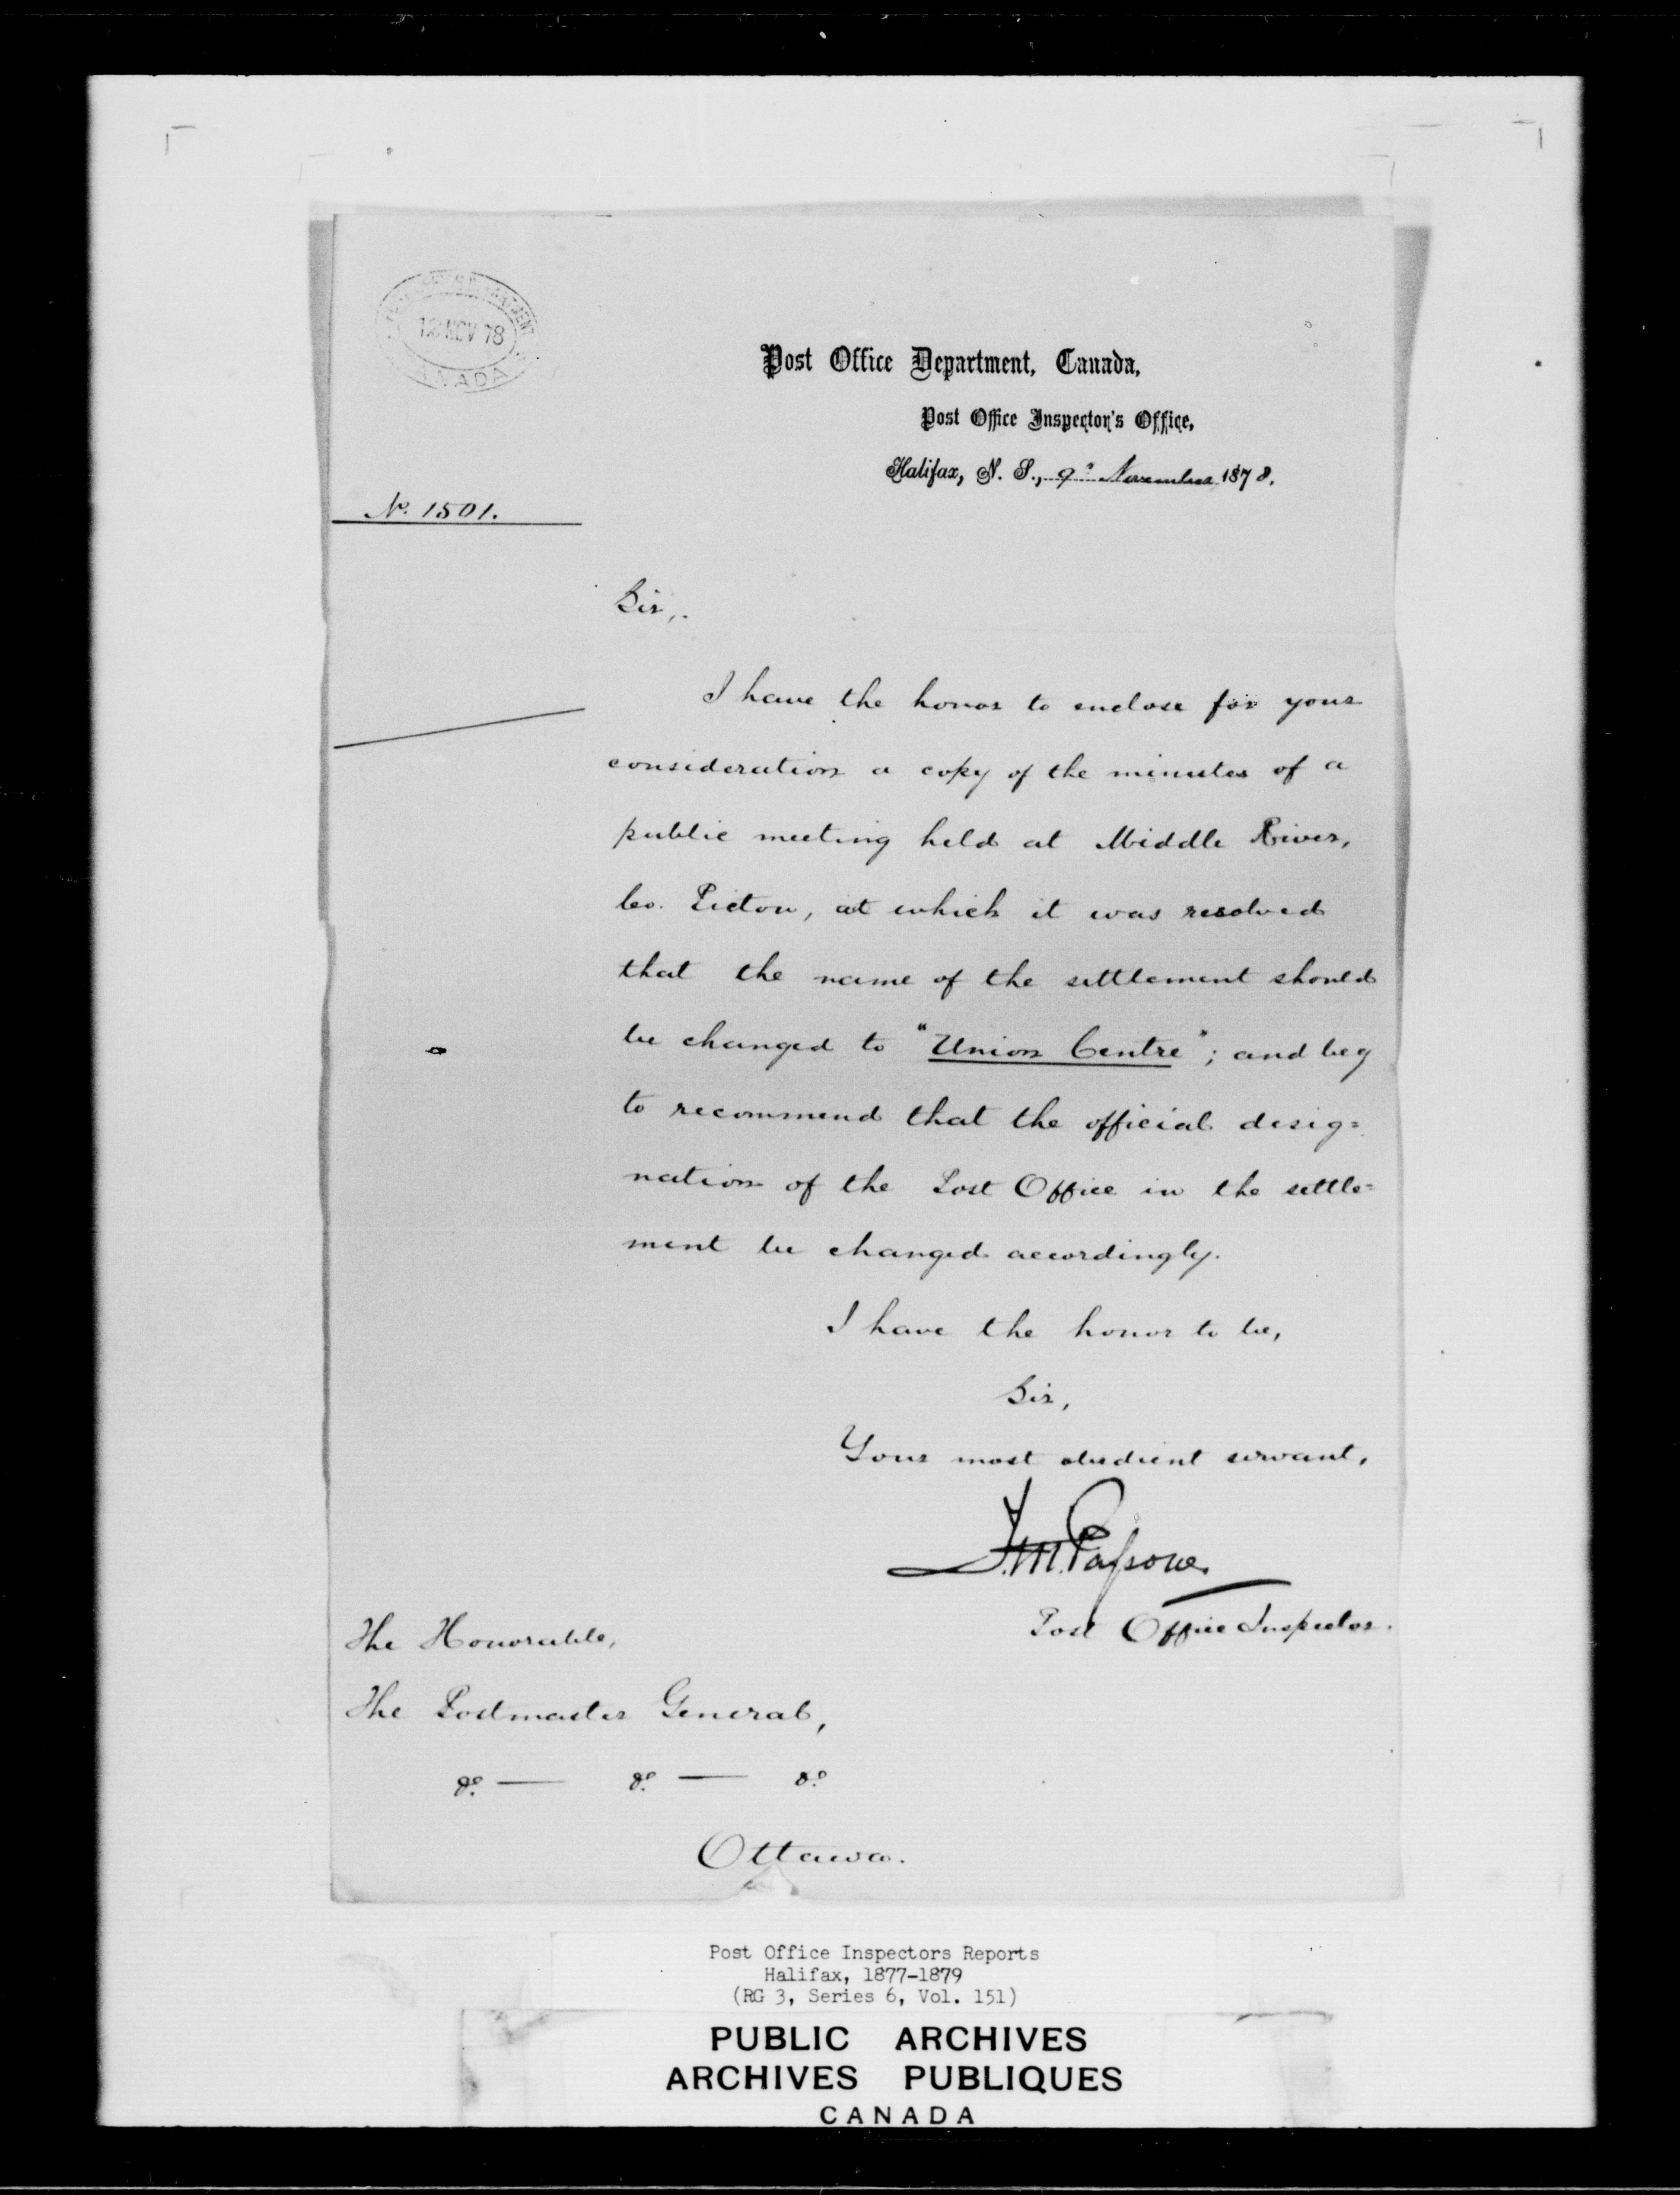 12 NOV 78
CANADA
Post Office Department, Canada,
Post Office Inspector's Office,
Halifax, N. S., 9th November 1878.
No. 1501.
Sir,
I have the honor to enclose for your
consideration a copy of the minutes of a
public meeting held at Middle River,
Co. Pictou, at which it was resolved
that the name of the settlement should
be changed to "Union Centre"; and beg
to recommend that the official desig=
nation of the Post Office in the settle=
ment be changed accordingly.
I have the honor to be,
Sir,
Your most obedient servant,
F.M. Passow
Post Office Inspector.
The Honorable,
The Postmaster General,
&c. — &c. — &c.
Ottawa.
Post Office Inspectors Reports
Halifax, 1877-1879
(RG 3, Series 6, Vol. 151)
PUBLIC ARCHIVES
ARCHIVES PUBLIQUES
CANADA